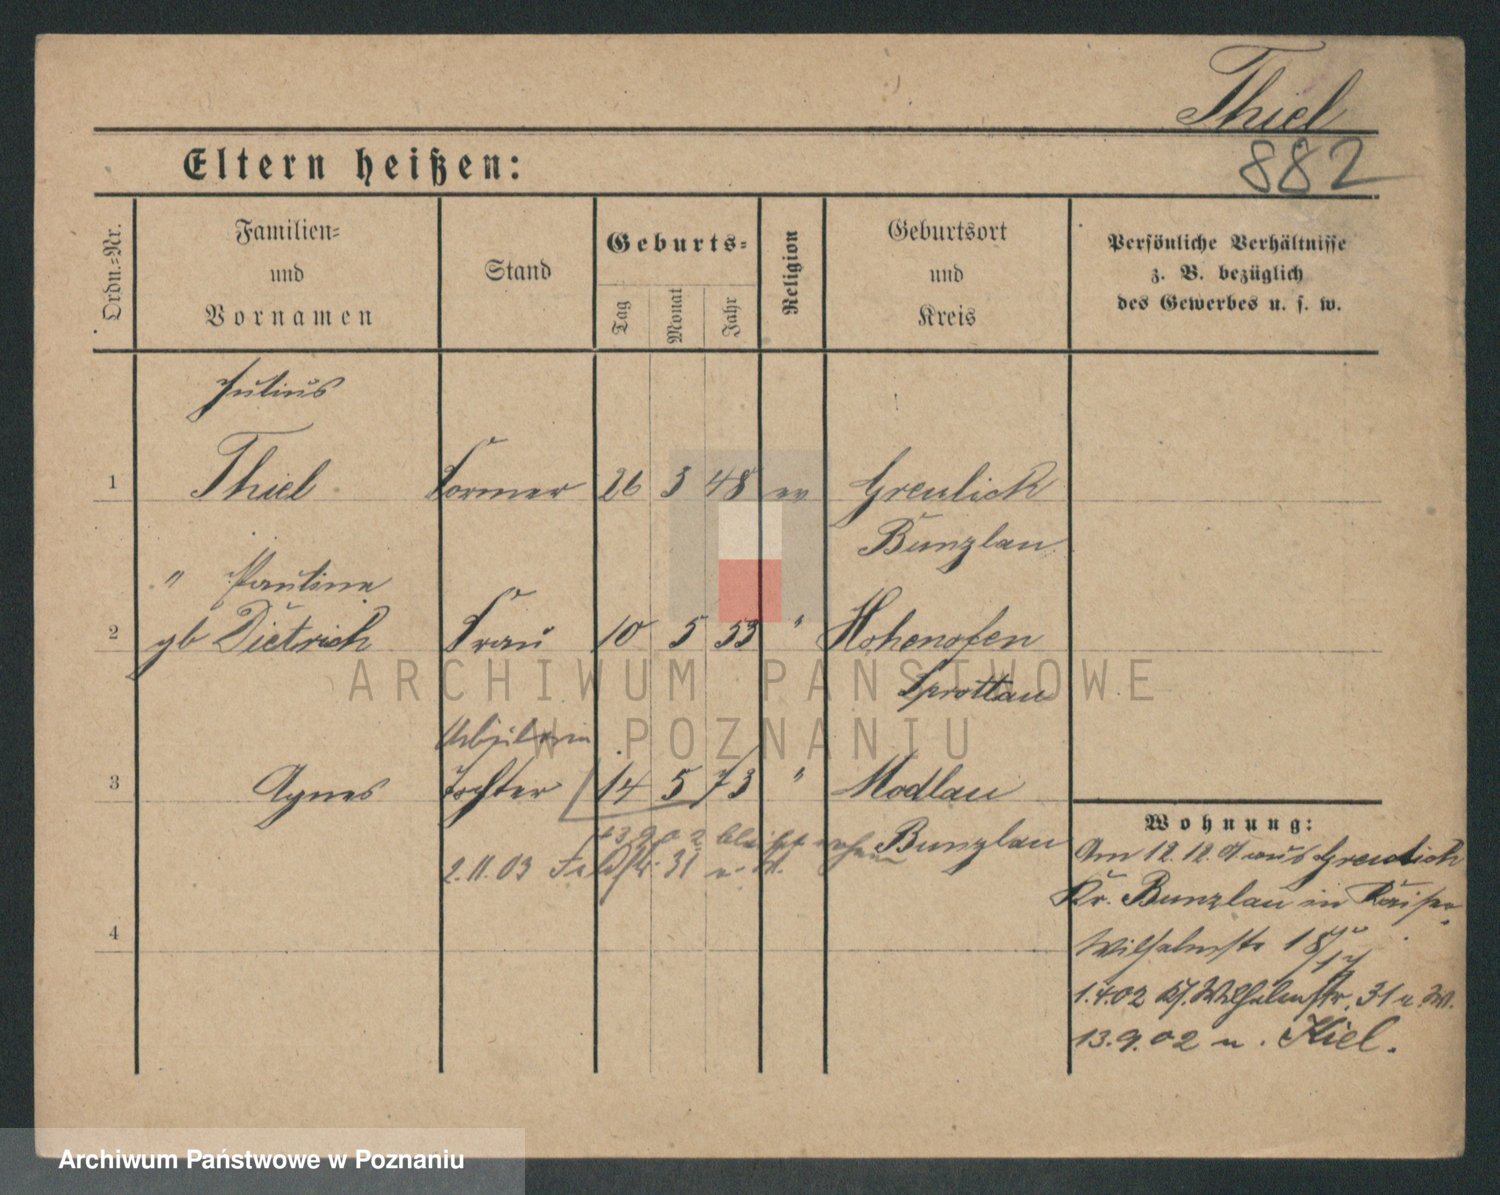 Thiel
882
Eltern heißen:
Ordn.=Nr.
Familien=
und
Vornamen
Stand
Geburts=
Tag
Monat
Jahr
Religion
Geburtsort
und
Kreis
Persönliche Verhältnisse
z. B. bezüglich
des Gewerbes u. s. w.
Julius
1 Thiel Former 26 3 48 ev Greulich
Bunzlau
" Pauline
2 gb Dietrich Frau 10 5 53 " Hohenofen
Sprottau
Arbeiterin
3 Agnes Tochter 14 5 73 " Modlau
Bunzlau
13.9.02 bleibt
2.11.03 31
4
Wohnung:
Am 12.12.01 aus Greulich
Kr. Bunzlau in Kaiser
Wilhelmstr 18
1.4.02 Wilhelmstr. 31
13.9.02 n. Kiel.
ARCHIWUM PAŃSTWOWE
W POZNANIU
Archiwum Państwowe w Poznaniu